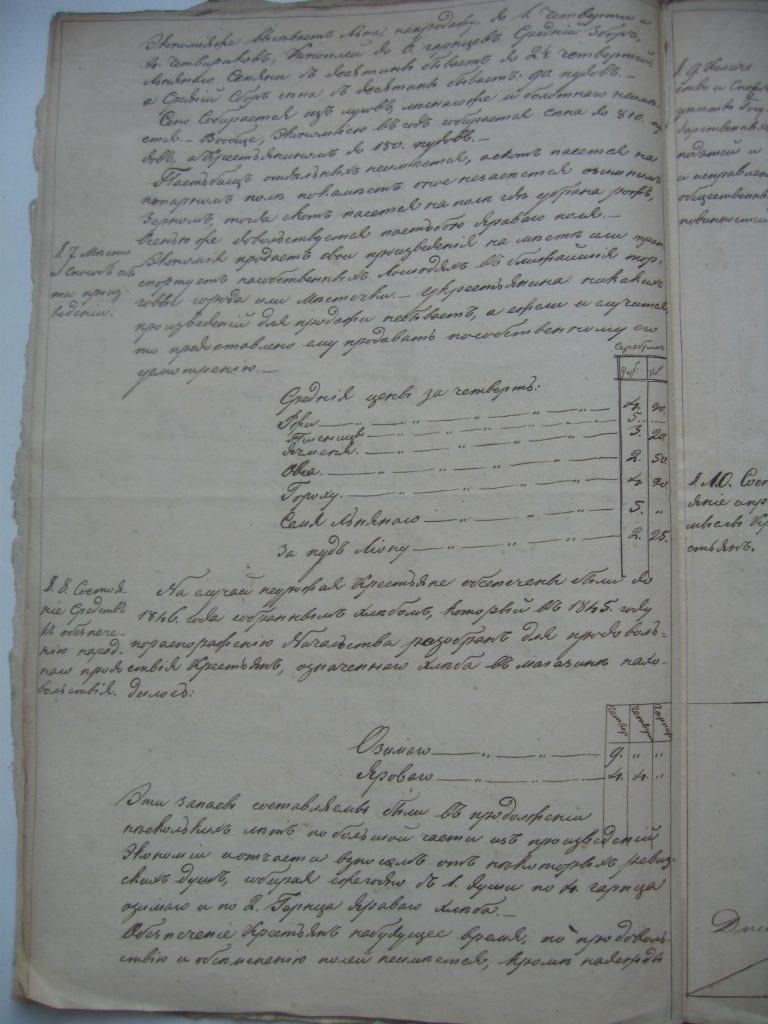 Экономія же высѣваетъ льна, на продажу, до 1. четверти и
4. четвериковъ, Коноплей до 6. гарнцевъ Средній Сборъ,
льнянаго Сѣмяни съ десятины бываетъ до 2½ четвертей,
а Средній Сборъ сена съ десятины бываетъ 90. пудовъ.—
Сено Собирается изъ луговъ, лѣснаго же и болотнаго неимѣ-
ется.— Вообще, Экономіею въ годъ собирается сена до 810. пу-
довъ, а Крестьяниномъ до 180. пудовъ.—
Пастьбищъ отдѣльныхъ неимѣется, а скотъ пасется на
паровомъ полѣ покамѣстъ оное незасеется озимымъ
зерномъ, тогда скотъ пасется на полѣ гдѣ убрана рожь,
осенью же довольствуется пастьбою яраваго поля.—
§ 7. Мѣсто
и Способъ сбы-
та произ-
веденій.
Экономія продаетъ свои произведенія на мѣстѣ или тран-
спортуетъ на собственныхъ лошадяхъ въ ближайшія тор-
говые города или Мѣстечки.— у крестьянина никакихъ
произведеній для продажи небываетъ, а ежели и случится,
то предоставлено ему продавать по собственному его
усмотренію.—
Серебромъ
Руб: Коп
Среднія цены за четверть:
Ржи — „ — „ — 4. 20.
Пшеницы — „ — „ — 5. „
Ячменя — „ — „ — 3. 20.
Овса — „ — „ — 2. 50.
Гороху — „ — „ — 4. 20.
Семя льнянаго — „ — „ — 5. „
За пудъ Лiону — „ — „ — 2. 25.
§ 8. Состоя-
ніе Средствъ
къ обезпече-
нію народ-
наго продо-
вольствія.
На случай неурожая Крестьяне обезпечены были до
1846. года собраннымъ хлѣбомъ, который въ 1845. году
по распоряженію Начальства разобранъ для продоволь-
ствія Крестьянъ, означеннаго хлѣба въ магазинѣ нахо-
дилось:
Озимаго — „ — „ — 9. „ „
Яроваго — „ — „ — 4. 4. „
Эти запасы составляемы были въ продолженіи
нѣсколькихъ лѣтъ по большой части изъ произведеній
Экономіи и отчасти взносомъ отъ нѣкоторыхъ ревиз-
скихъ душъ, собирая ежегодно съ 1. души по 4. гарнца
озимаго и по 2. Гарнца яраваго хлѣба.—
Обезпеченіе Крестьянъ на будущее время, по продоволь-
ствію и обсемененію полей неимѣется, кромѣ надежды
§ 9. Количе-
ство и Спо-
дарственныхъ
податей и
и исправленi
общественны
повинностей
§ 10. Сост
яніе и про
мыслы Кр
стьянъ.